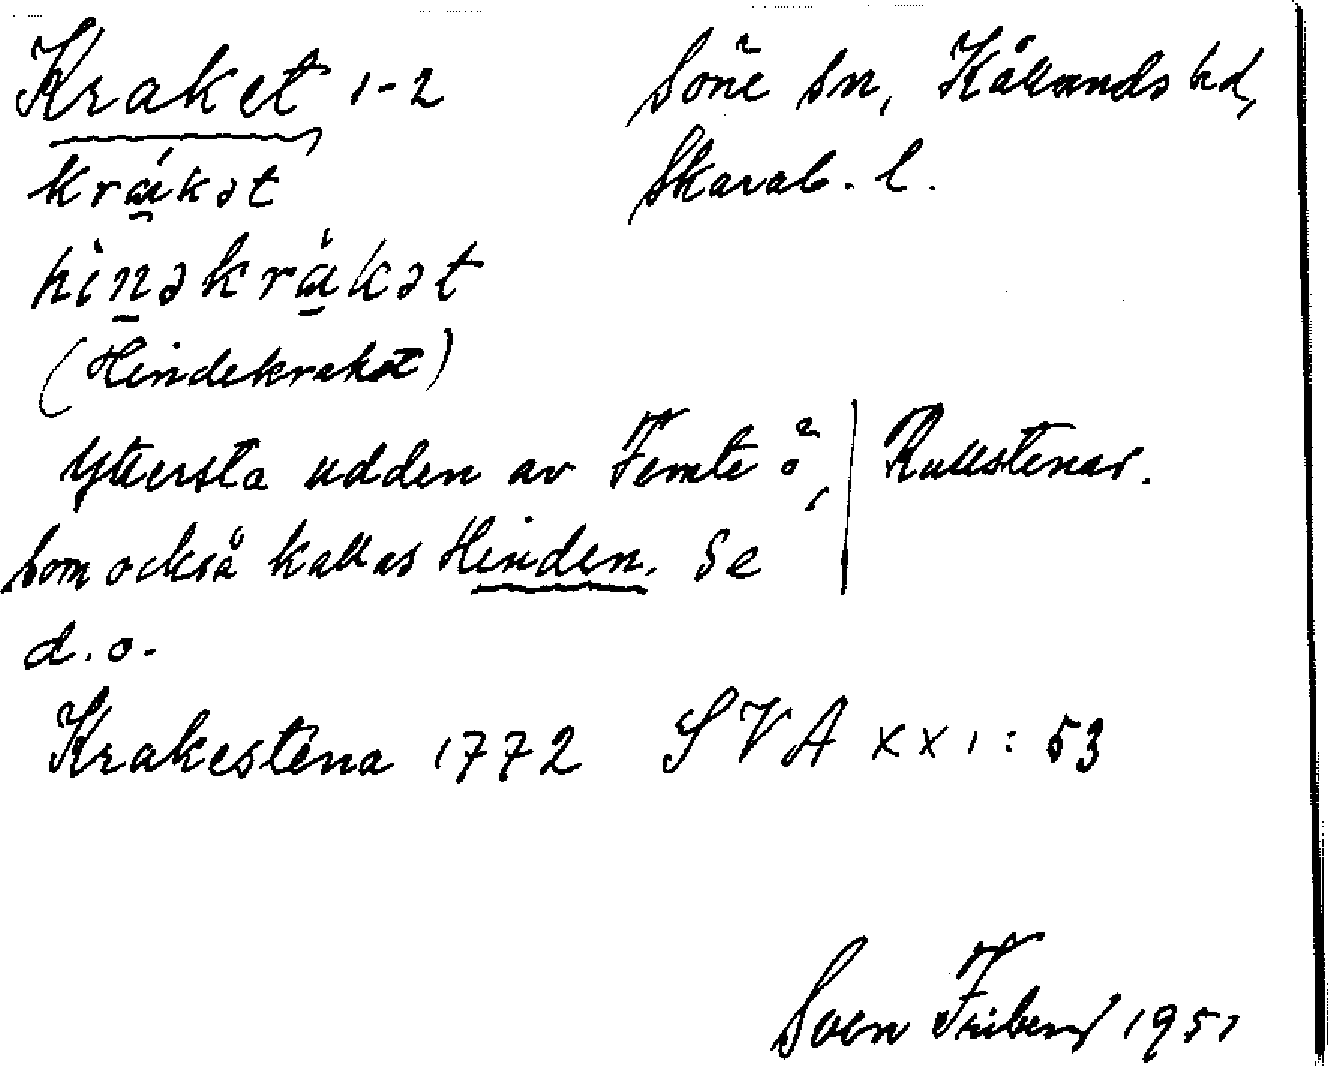 Kraket 1-2
Söne sn, Kållands hd,
Skarab. l.
krákət
hìnəkràkət
(Hindekraket)
Yttersta udden av Femte ö,
Rullstenar.
som också kallas Hinden. Se
d.o.
Krakestena 1772 SVA XXI: 53
Sven Friberg 1951